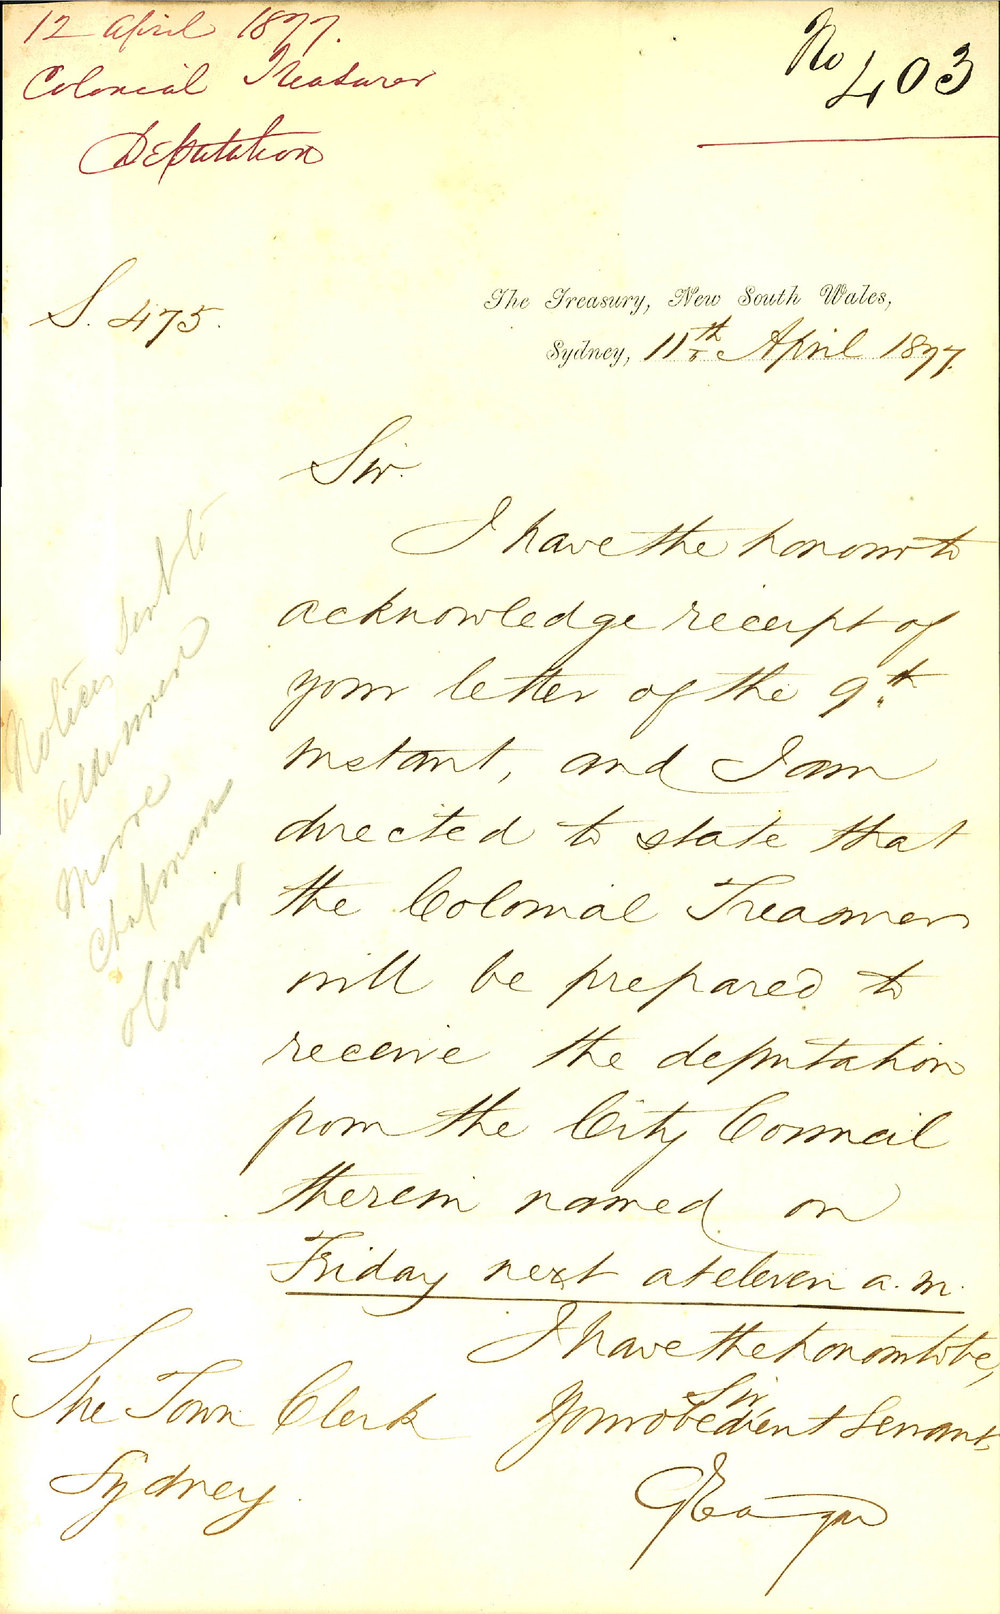 12 April 1877.
Colonial Treasurer
Deputation
No 403
S. 475.
The Treasury, New South Wales,
Sydney, 11th April 1877.
Sir.
I have the honour to
acknowledge receipt of
your letter of the 9th
instant, and I am
directed to state that
the Colonial Treasurer
will be prepared to
receive the deputation
from the City Council
therein named on
Friday next at eleven a.m.
I have the honour to be,
Sir
Your obedient Servant,
G Eagar
The Town Clerk
Sydney.
Notices sent to
Aldermen
Moore
Chapman
O'Connor